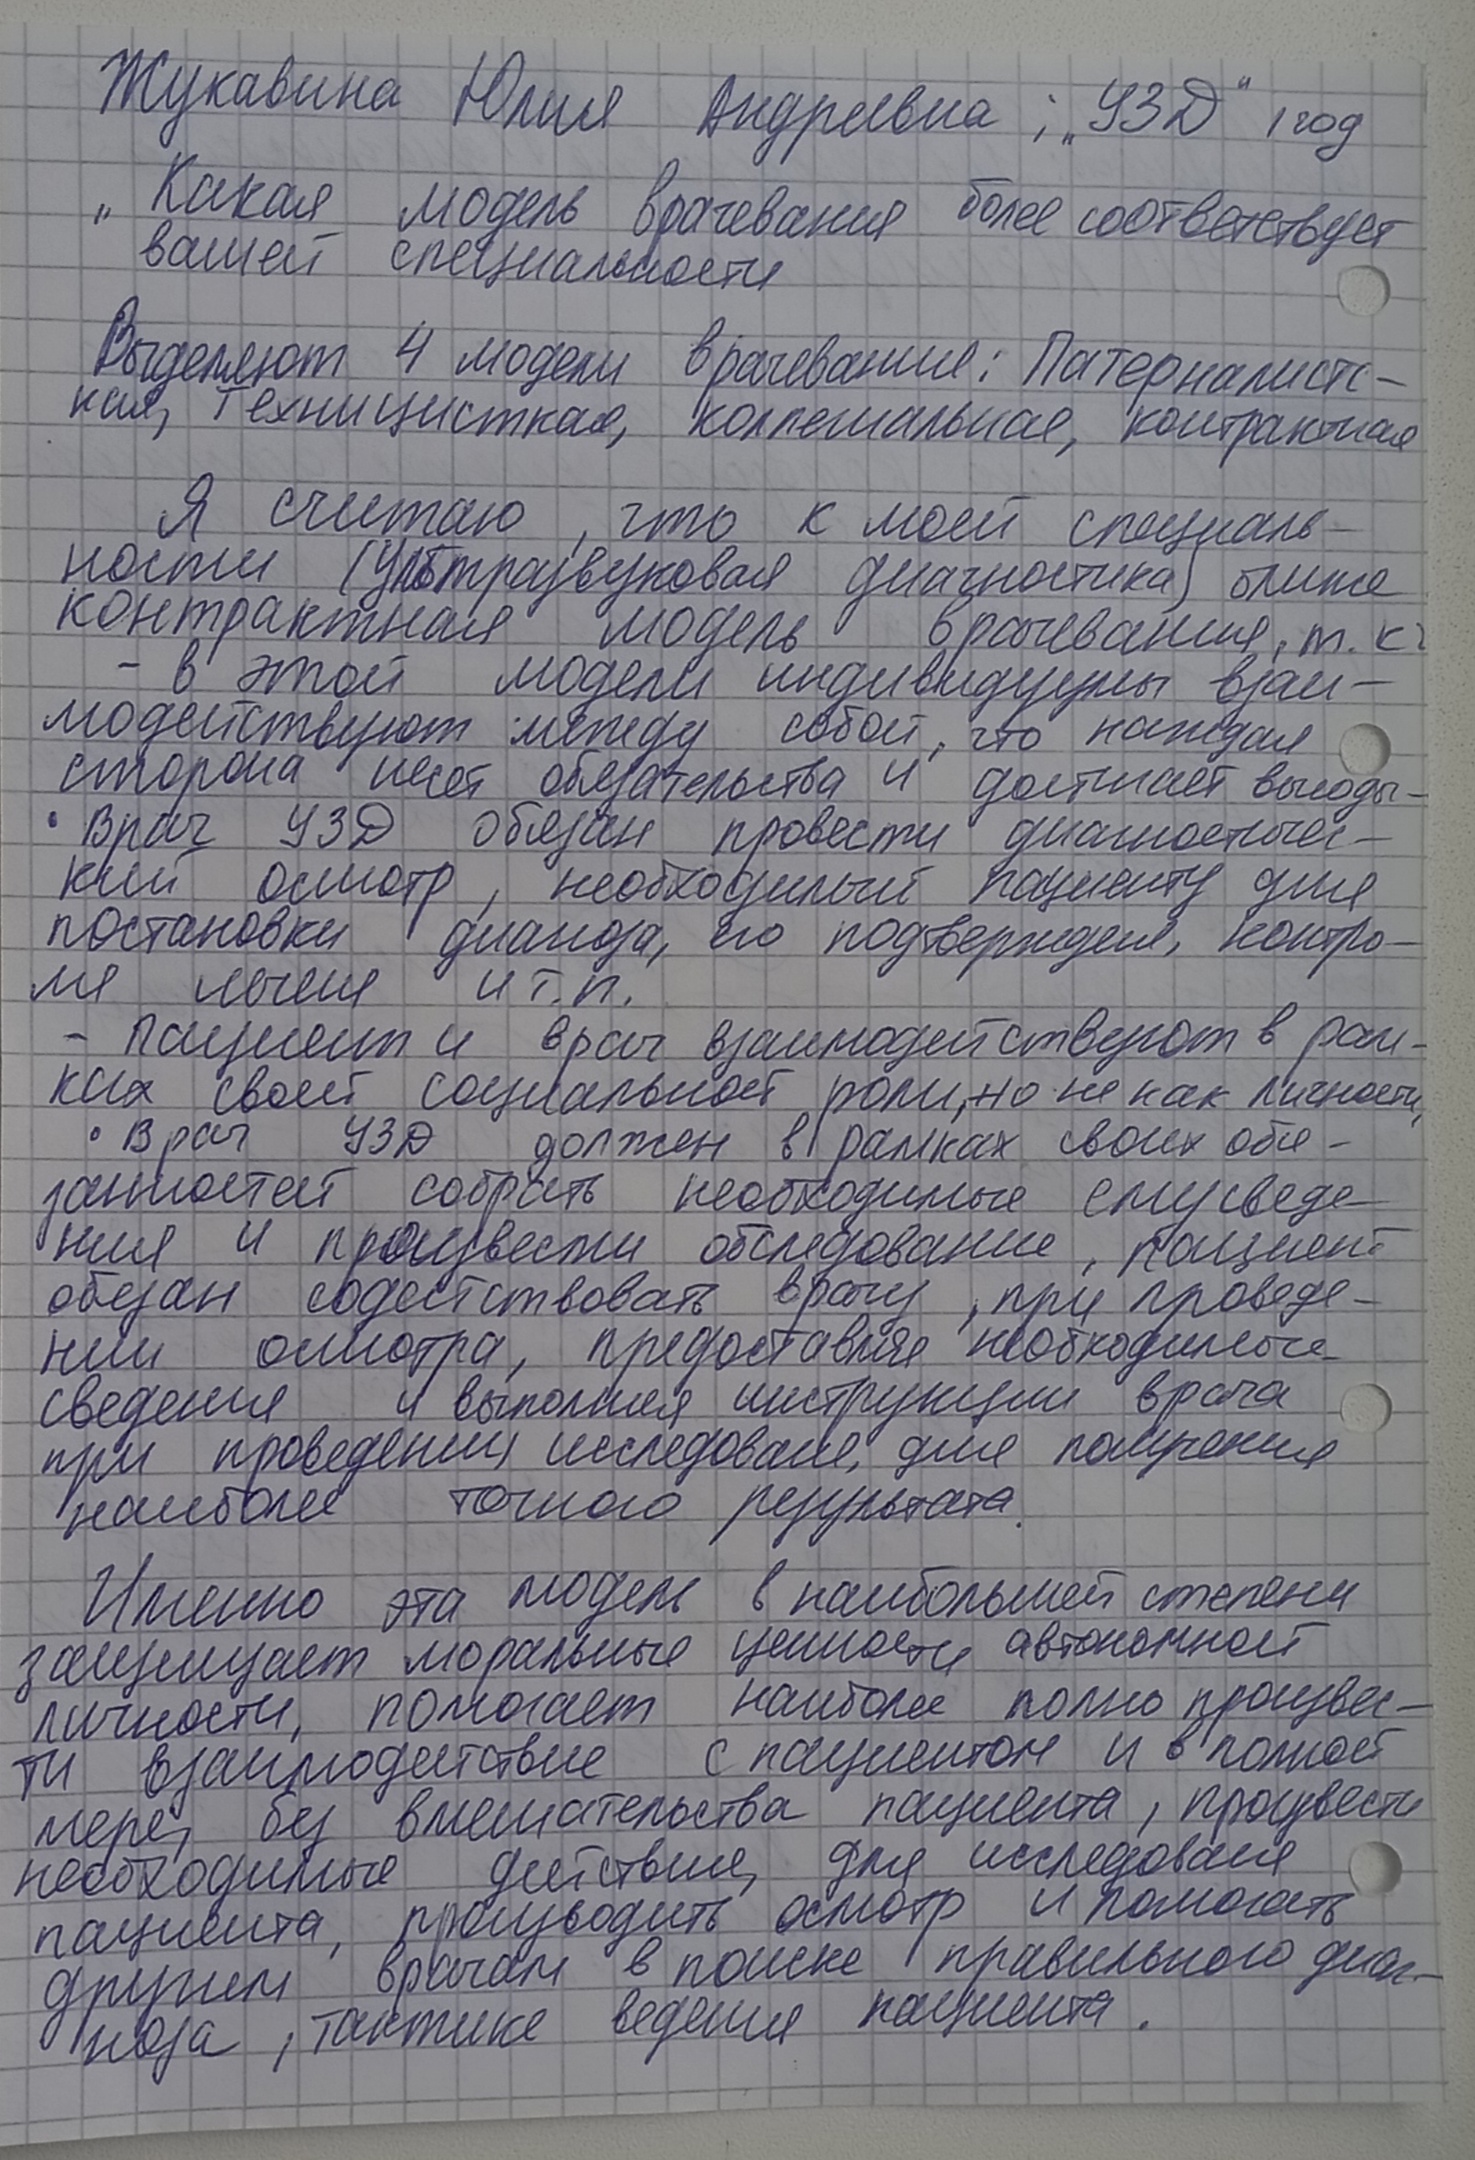 Жукавина Юлия Андреевна ; „УЗД" 1 год
„ Какая модель врачевания более соответствует
вашей специальности
Выделяют 4 модели врачевания: Патерналистс-
кая, Техницисткая, коллегиальная, контрактная
Я считаю, что к моей специаль-
ности (Ультразвуковая диагностика) ближе
контрактная модель врачевания, т. к.
- в этой модели индивидуумы взаи-
модействуют между собой, что каждая
сторона несет обязательства и достигает выгоды-
• Врач УЗД обязан провести диагностичес-
кий осмотр, необходимый пациенту для
постановки диагноза, его подтвержден, контро-
ля лечен и т.п.
- Пациент и врач взаимодействуют в рам-
ках своей социальной роли, но не как личности,
• Врач УЗД должен в рамках своих обя-
занностей собрать необходимые ему сведе-
ния и произвести обследование, пациент
обязан содействовать врачу, при проведе-
нии осмотра, предоставляя необходимые
сведения и выполняя инструкции врача
при проведении исследован, для получения
наиболее точного результата.
Именно эта модель в наибольшей степени
защищает моральные ценности автономной
личности, помогает наиболее полно произвес-
ти взаимодействие с пациентом и в полной
мере, без вмешательства пациента, произвести
необходимые действия, для исследован
пациента, производить осмотр и помогать
другим врачам в поиске правильного диаг-
ноза, тактике ведения пациента.